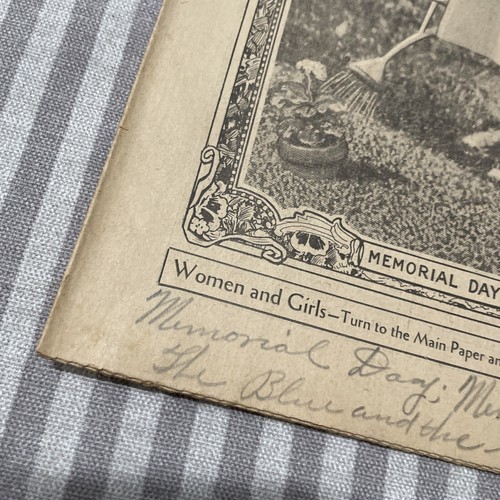 MEMORIAL DAY
Women and Girls—Turn to the Main Paper an
Memorial Day; Me
The Blue and the